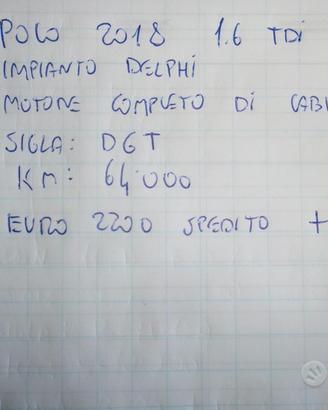 POLO 2018 1.6 TDI
IMPIANTO DELPHI
MOTORE COMPLETO DI
SIGLA: DGT
KM: 64.000
EURO 2200 SPEDITO +